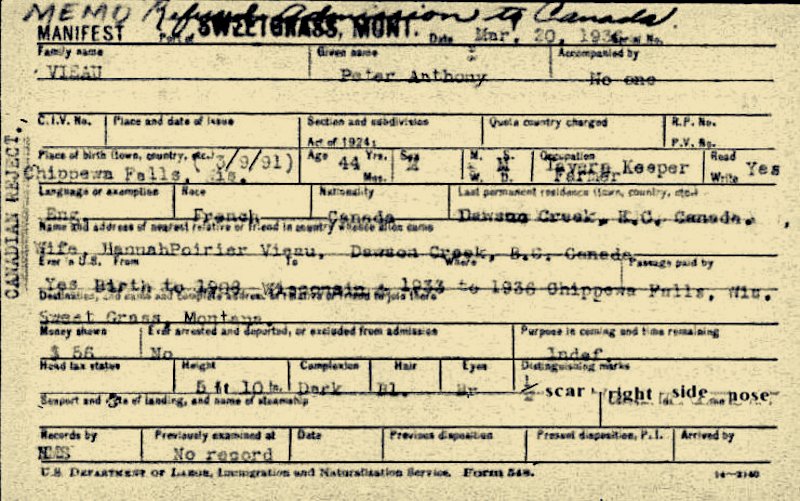 MEMO Refused Admission to Canada.
MANIFEST Port of SWEETGRASS, MONT. Date Mar. 20, 1936 Serial No.
Family name Given name Accompanied by
VIEAU Peter Anthony No one
C.I.V. No. Place and date of issue Section and subdivision Quota country charged R.P. No.
Act of 1924: P.V. No.
Place of birth (town, country, etc.) (3/9/91) Age 44 Yrs. Sex M M. S. Occupation Tavern Keeper Read Yes
Chippewa Falls, Wis. Mos. W. D. Farmer Write
Language or exemption Race Nationality Last permanent residence (town, country, etc.)
Eng. French Canada Dawson Creek, B.C. Canada.
Name and address of nearest relative or friend in country whence alien came
Wife, HannahPoirier Vieau, Dawson Creek, B.C. Canada
Ever in U.S. From To Where Passage paid by
Yes Birth to 1908 Wisconsin & 1933 to 1936 Chippewa Falls, Wis.
Destination, and name and complete address of relative or friend to join there
Sweet Grass, Montana.
Money shown Ever arrested and deported, or excluded from admission Purpose in coming and time remaining
$ 56 No Indef.
Head tax status Height Complexion Hair Eyes Distinguishing marks
5 ft 10 in. Dark Bl. Br ½ scar right side nose
Seaport and date of landing, and name of steamship
Records by Previously examined at Date Previous disposition Present disposition, P.I. Arrived by
No record
U.S. DEPARTMENT OF LABOR, Immigration and Naturalization Service. Form 548. 14—2140
CANADIAN REJECT.